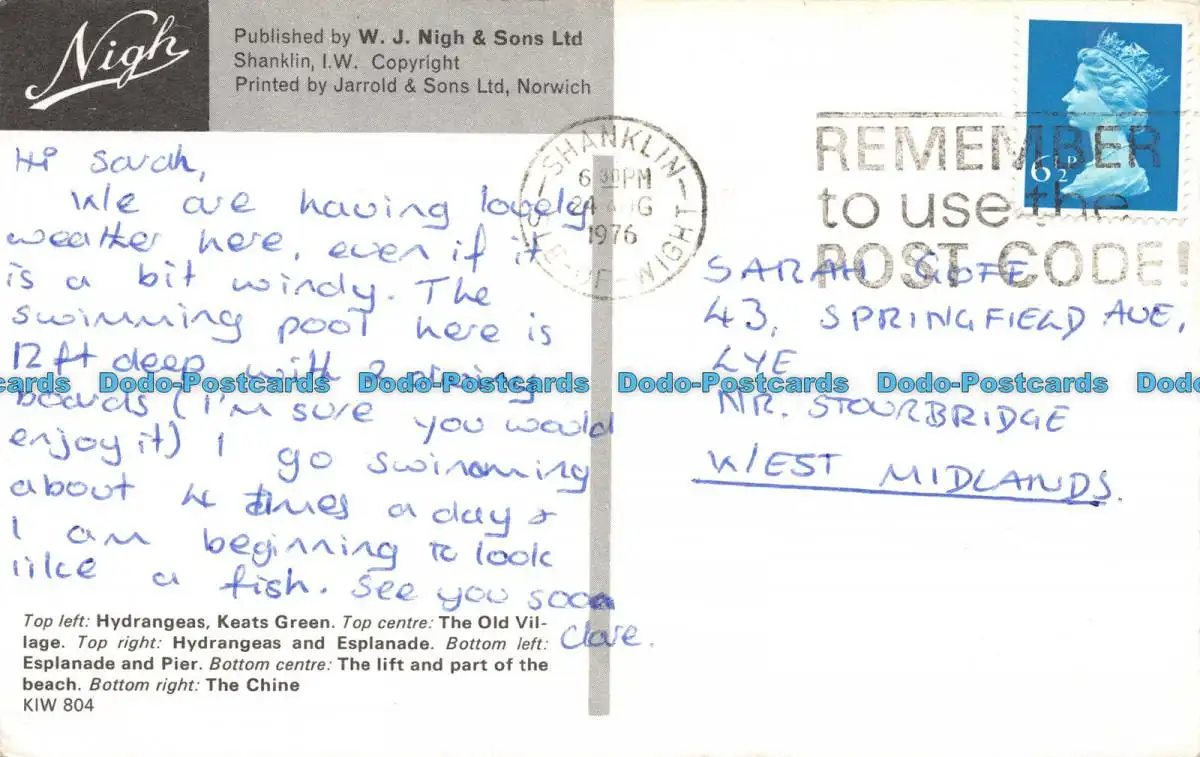 Nigh
Published by W. J. Nigh & Sons Ltd
Shanklin, I.W. Copyright
Printed by Jarrold & Sons Ltd, Norwich
Hi Sarah,
We are having lovely
weather here, even if it
is a bit windy. The
swimming pool here is
12ft deep with 2 diving
boards (I'm sure you would
enjoy it) I go swimming
about 4 times a day &
I am beginning to look
like a fish. See you soon
Clare.
Top left: Hydrangeas, Keats Green. Top centre: The Old Vil-
lage. Top right: Hydrangeas and Esplanade. Bottom left:
Esplanade and Pier. Bottom centre: The lift and part of the
beach. Bottom right: The Chine
KIW 804
SHANKLIN
6 30PM
24 AUG
1976
ISLE-OF-WIGHT
REMEMBER
to use the
POST CODE!
6½P
SARAH GOFF
43, SPRINGFIELD AVE,
LYE
NR. STOURBRIDGE
WEST MIDLANDS.
Dodo-Postcards Dodo-Postcards Dodo-Postcards Dodo-Postcards